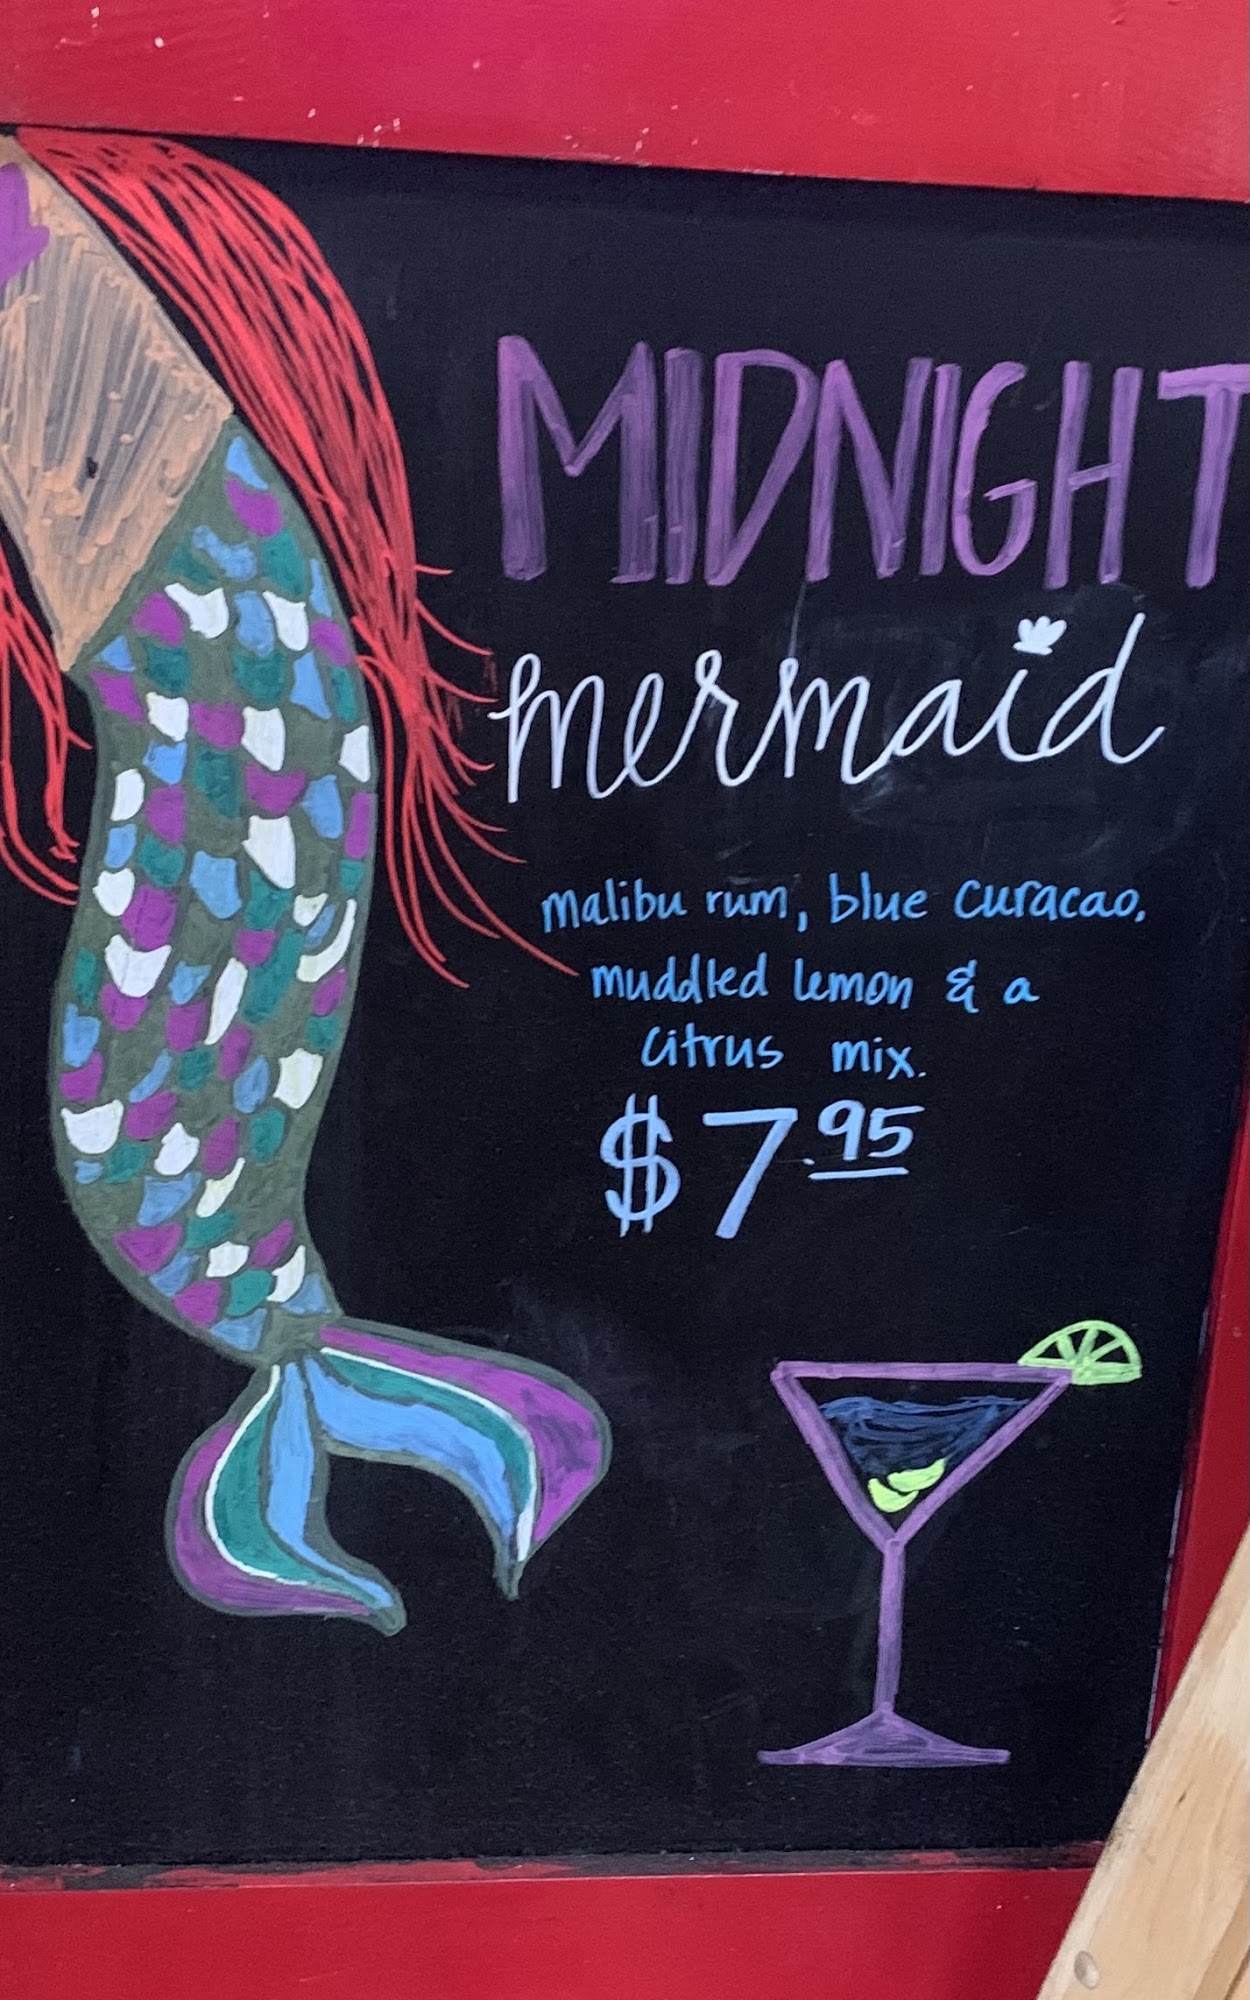 MIDNIGHT
mermaid
malibu rum, blue curacao,
muddled lemon & a
citrus mix.
$7.95